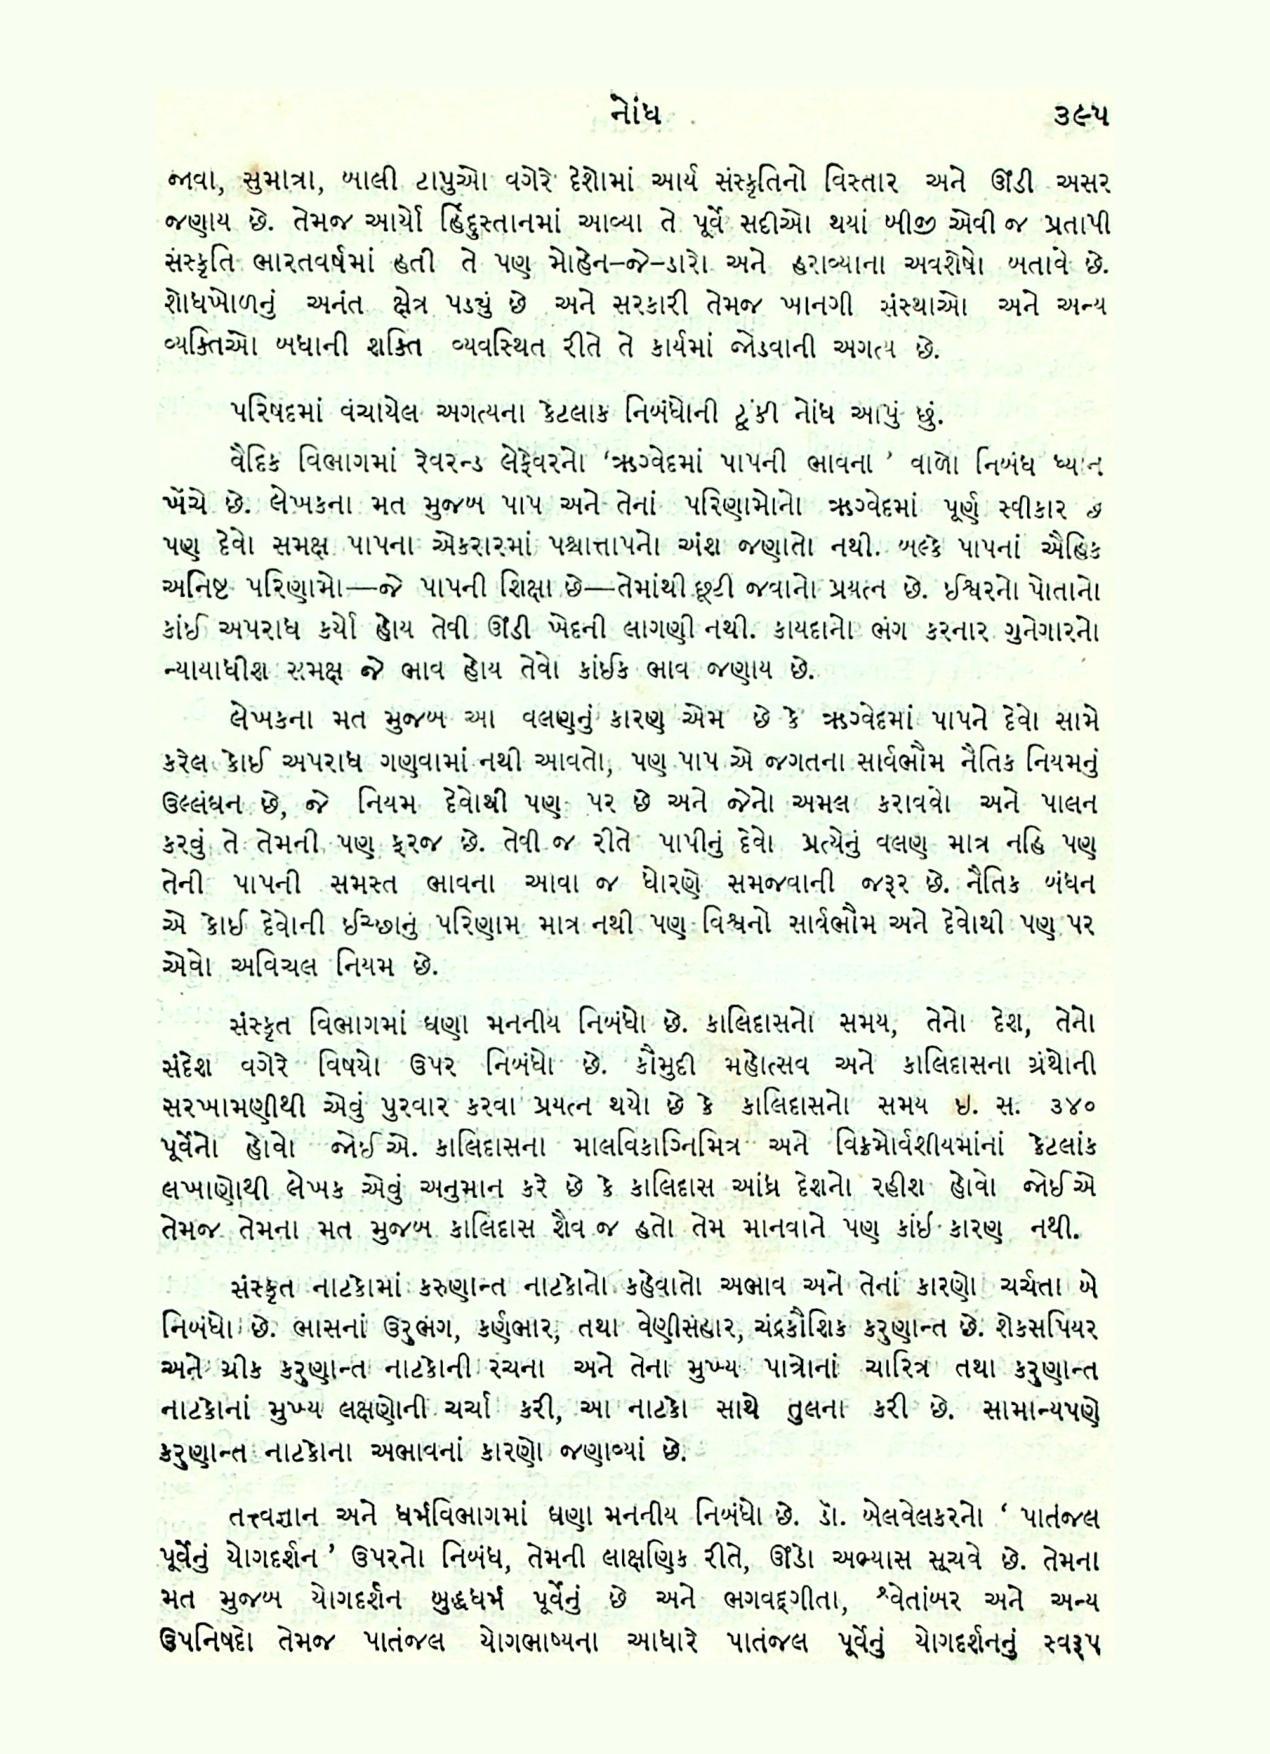 નોંધ ૩૯૫
જાવા, સુમાત્રા, બાલી ટાપુઓ વગેરે દેશોમાં આર્ય સંસ્કૃતિનો વિસ્તાર અને ઊંડી અસર
જણાય છે. તેમજ આર્યો હિંદુસ્તાનમાં આવ્યા તે પૂર્વે સદીઓ થયાં બીજી એવી જ પ્રતાપી
સંસ્કૃતિ ભારતવર્ષમાં હતી તે પણ મોહેન–જે–ડારો અને હરાવ્યાના અવશેષો બતાવે છે.
શોધખોળનું અનંત ક્ષેત્ર પડ્યું છે અને સરકારી તેમજ ખાનગી સંસ્થાઓ અને અન્ય
વ્યક્તિઓ બધાની શક્તિ વ્યવસ્થિત રીતે તે કાર્યમાં જોડવાની અગત્ય છે.
પરિષદમાં વંચાયેલ અગત્યના કેટલાક નિબંધોની ટૂંકી નોંધ આપું છું.
વૈદિક વિભાગમાં રેવરન્ડ લેફેવરનો ‘ઋગ્વેદમાં પાપની ભાવના ’ વાળો નિબંધ ધ્યાન
ખેંચે છે. લેખકના મત મુજબ પાપ અને તેનાં પરિણામોનો ઋગ્વેદમાં પૂર્ણ સ્વીકાર છે
પણ દેવો સમક્ષ પાપના એકરારમાં પશ્ચાત્તાપનો અંશ જણાતો નથી. બલ્કે પાપનાં ઐહિક
અનિષ્ટ પરિણામો—જે પાપની શિક્ષા છે—તેમાંથી છૂટી જવાનો પ્રયત્ન છે. ઈશ્વરનો પોતાનો
કાંઈ અપરાધ કર્યો હોય તેવી ઊંડી ખેદની લાગણી નથી. કાયદાનો ભંગ કરનાર ગુનેગારનો
ન્યાયાધીશ સમક્ષ જે ભાવ હોય તેવો કાંઈક ભાવ જણાય છે.
લેખકના મત મુજબ આ વલણનું કારણ એમ છે કે ઋગ્વેદમાં પાપને દેવો સામે
કરેલ કોઈ અપરાધ ગણવામાં નથી આવતો, પણ પાપ એ જગતના સાર્વભૌમ નૈતિક નિયમનું
ઉલ્લંઘન છે, જે નિયમ દેવોથી પણ પર છે અને જેનો અમલ કરાવવો અને પાલન
કરવું તે તેમની પણ ફરજ છે. તેવી જ રીતે પાપીનું દેવો પ્રત્યેનું વલણ માત્ર નહિ પણ
તેની પાપની સમસ્ત ભાવના આવા જ ધોરણે સમજવાની જરૂર છે. નૈતિક બંધન
એ કોઈ દેવોની ઈચ્છાનું પરિણામ માત્ર નથી પણ વિશ્વનો સાર્વભૌમ અને દેવોથી પણ પર
એવો અવિચલ નિયમ છે.
સંસ્કૃત વિભાગમાં ઘણા મનનીય નિબંધો છે. કાલિદાસનો સમય, તેનો દેશ, તેનો
સંદેશ વગેરે વિષયો ઉપર નિબંધો છે. કૌમુદી મહોત્સવ અને કાલિદાસના ગ્રંથોની
સરખામણીથી એવું પુરવાર કરવા પ્રયત્ન થયો છે કે કાલિદાસનો સમય ઇ. સ. ૩૪૦
પૂર્વેનો હોવો જોઈએ. કાલિદાસના માલવિકાગ્નિમિત્ર અને વિક્રમોર્વશીયમાંનાં કેટલાંક
લખાણોથી લેખક એવું અનુમાન કરે છે કે કાલિદાસ આંધ્ર દેશનો રહીશ હોવો જોઈએ
તેમજ તેમના મત મુજબ કાલિદાસ શૈવ જ હતો તેમ માનવાને પણ કાંઈ કારણ નથી.
સંસ્કૃત નાટકોમાં કરુણાન્ત નાટકોનો કહેવાતો અભાવ અને તેનાં કારણો ચર્ચતા બે
નિબંધો છે. ભાસનાં ઉરુભંગ, કર્ણભાર, તથા વેણીસંહાર, ચંદ્રકૌશિક કરુણાન્ત છે. શેકસપિયર
અને ગ્રીક કરુણાન્ત નાટકોની રચના અને તેના મુખ્ય પાત્રોનાં ચારિત્ર તથા કરુણાન્ત
નાટકોનાં મુખ્ય લક્ષણોની ચર્ચા કરી, આ નાટકો સાથે તુલના કરી છે. સામાન્યપણે
કરુણાન્ત નાટકોના અભાવનાં કારણો જણાવ્યાં છે.
તત્ત્વજ્ઞાન અને ધર્મવિભાગમાં ઘણા મનનીય નિબંધો છે. ડૉ. બેલવેલકરનો ‘ પાતંજલ
પૂર્વેનું યોગદર્શન ’ ઉપરનો નિબંધ, તેમની લાક્ષણિક રીતે, ઊંડો અભ્યાસ સૂચવે છે. તેમના
મત મુજબ યોગદર્શન બુદ્ધધર્મ પૂર્વેનું છે અને ભગવદ્ગીતા, શ્વેતાંબર અને અન્ય
ઉપનિષદો તેમજ પાતંજલ યોગભાષ્યના આધારે પાતંજલ પૂર્વેનું યોગદર્શનનું સ્વરૂપ